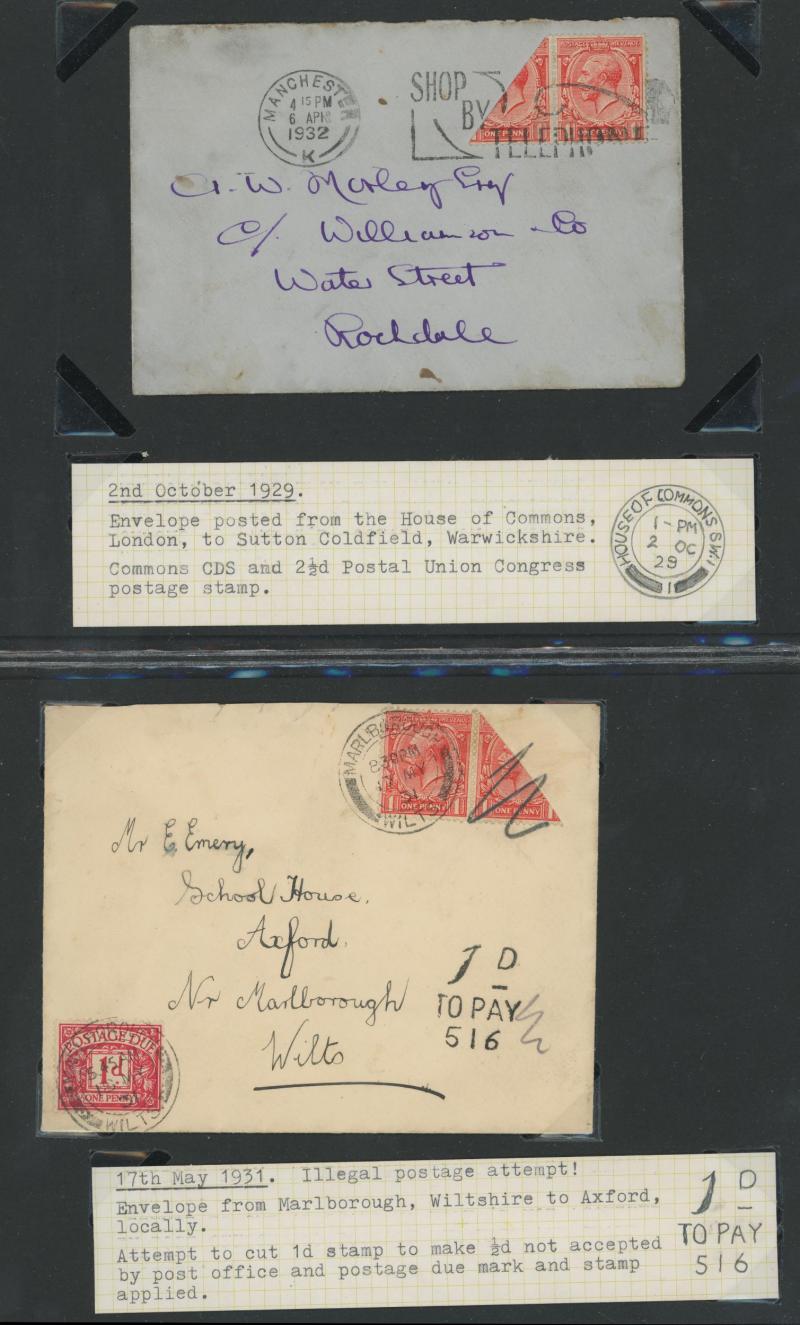 MANCHESTER
4 15 PM
6 APR
1932
K
SHOP
BY
TELEPHONE
ONE PENNY
W. Morley Esq
C/. Williamson & Co
Water Street
Rochdale
2nd October 1929.
Envelope posted from the House of Commons,
London, to Sutton Coldfield, Warwickshire.
Commons CDS and 2½d Postal Union Congress
postage stamp.
HOUSE OF COMMONS S.W.1
1-PM
2 OC
29
1
MARLBOROUGH
830PM
17 MY
31
WILTS
1 ONE PENNY 1
ONE PENNY 1
Mr E. Emery,
School House.
Axford.
Nr Marlborough
Wilts
1D
TO PAY
516
POSTAGE DUE
1d
ONE PENNY
WILTS
17th May 1931. Illegal postage attempt!
Envelope from Marlborough, Wiltshire to Axford,
locally.
Attempt to cut 1d stamp to make ½d not accepted
by post office and postage due mark and stamp
applied.
1D
TO PAY
516